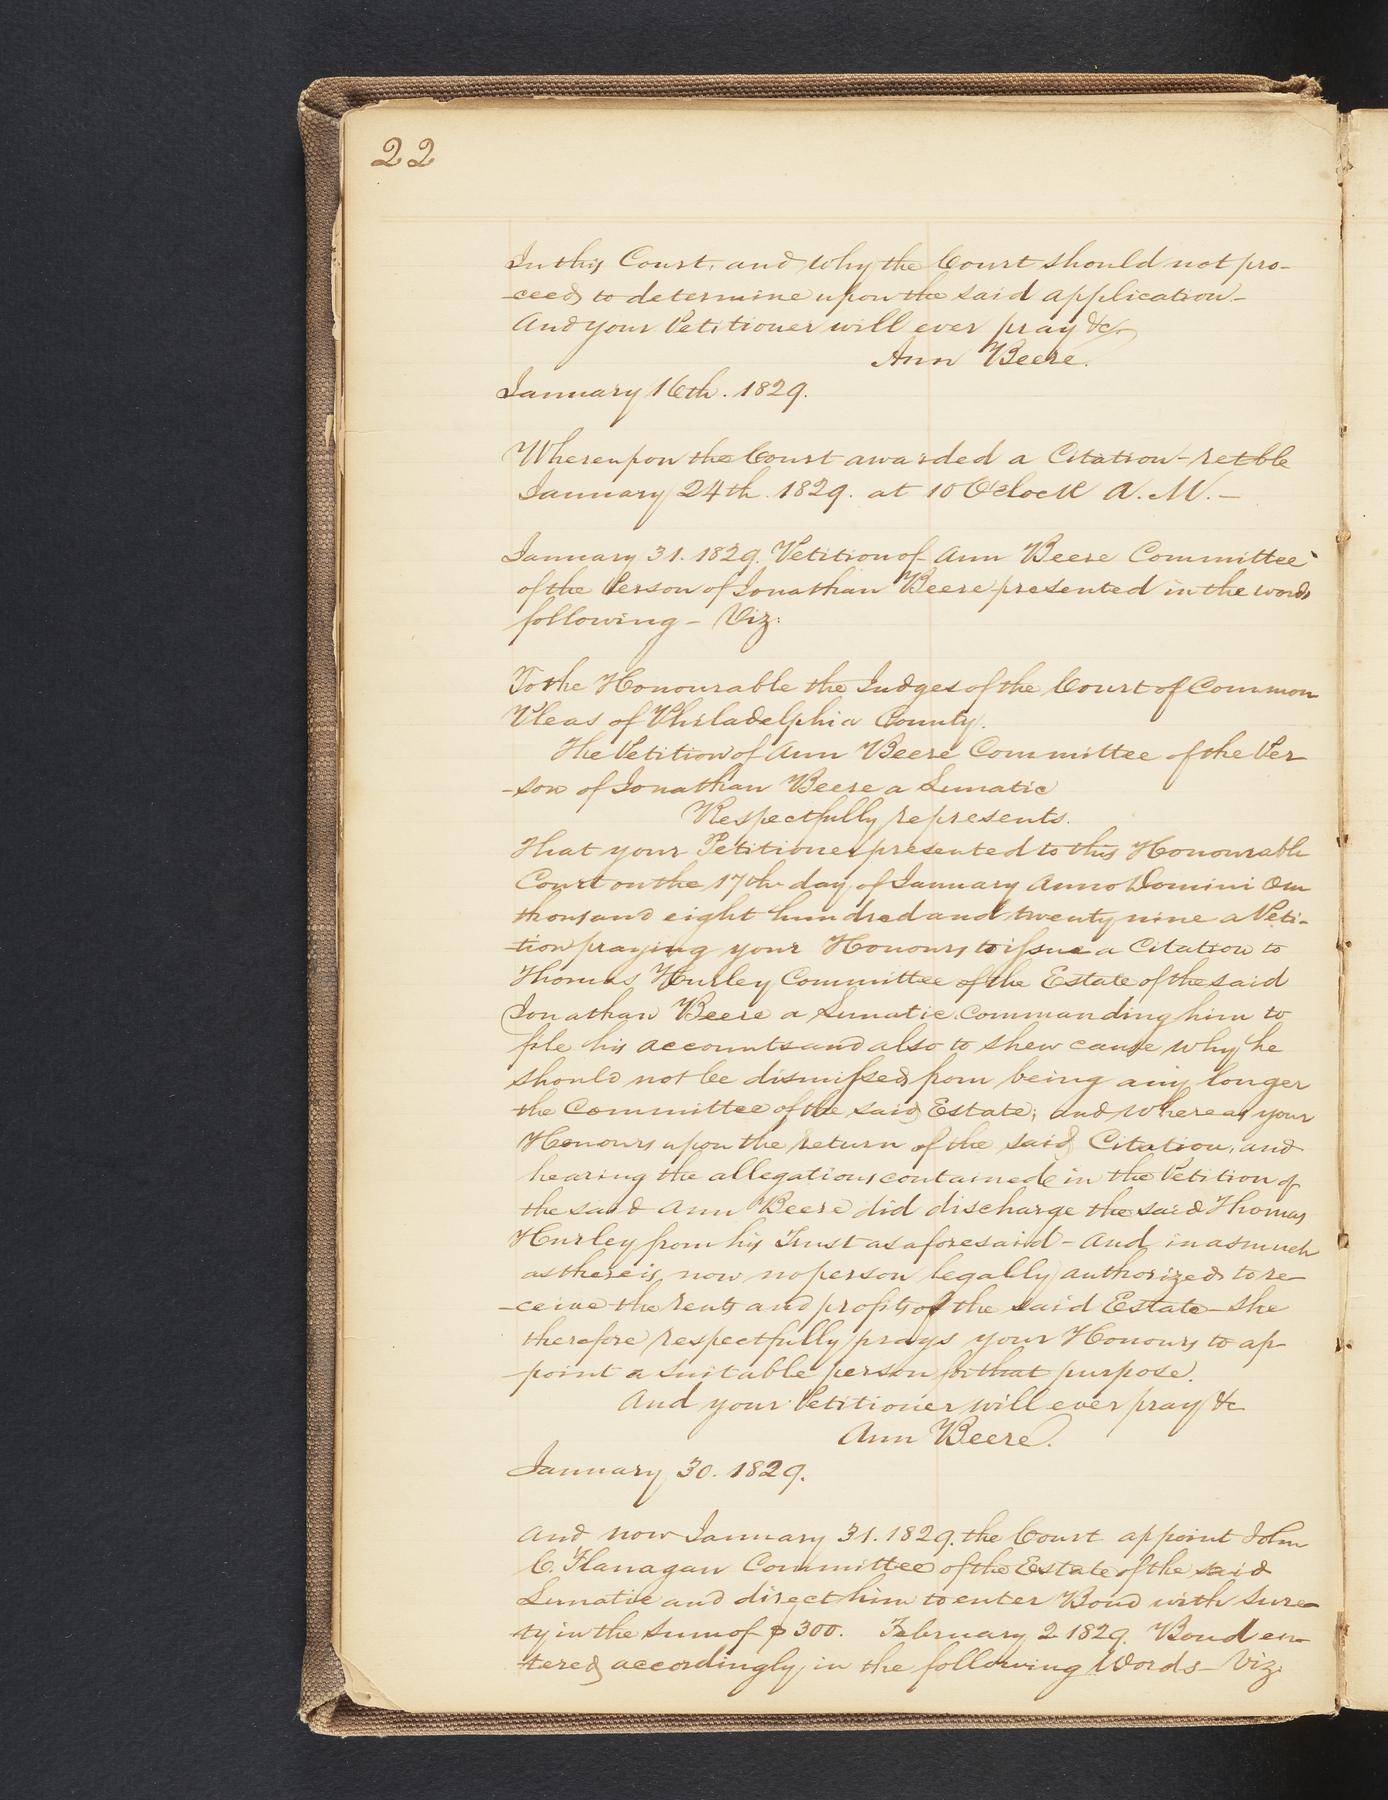 22
In this Court, and why the Court should not pro-
-ceed to determine upon the said application-
And your Petitioner will ever pray &c.
Ann Beere.
January 16th. 1829.
Whereupon the Court awarded a Citation - retble
January 24th. 1829. at 10 O'clock A.M.-
January 31. 1829. Petition of Ann Beere Committee
of the Person of Jonathan Beere presented in the words
following - Viz:
To the Honourable the Judges of the Court of Common
Pleas of Philadelphia County.
The Petition of Ann Beere Committee of the Per
-son of Jonathan Beere a Lunatic
Respectfully represents.
That your Petitioner presented to this Honourable
Court on the 17th day of January Anno Domini One
thousand eight hundred and twenty nine a Peti-
-tion praying your Honours to issue a Citation to
Thomas Hurley Committee of the Estate of the said
Jonathan Beere a Lunatic, Commanding him to
file his accounts and also to shew cause why he
should not be dismissed from being any longer
the Committee of the said Estate; and Whereas your
Honours upon the return of the said Citation, and
hearing the allegations contained in the Petition of
the said Ann Beere did discharge the said Thomas
Hurley from his Trust as aforesaid - And inasmuch
as there is now no person legally authorized to re-
-ceive the rents and profits of the said Estate - She
therefore respectfully prays your Honours to ap-
-point a suitable person for that purpose.
And your Petitioner will ever pray &c
Ann Beere.
January 30. 1829.
And now January 31. 1829. the Court appoint John
C. Flanagan Committee of the Estate of the said
Lunatic and direct him to enter Bond with Sure-
-ty in the Sum of $300. February 2 1829. Bond en-
-tered accordingly in the following Words - Viz: